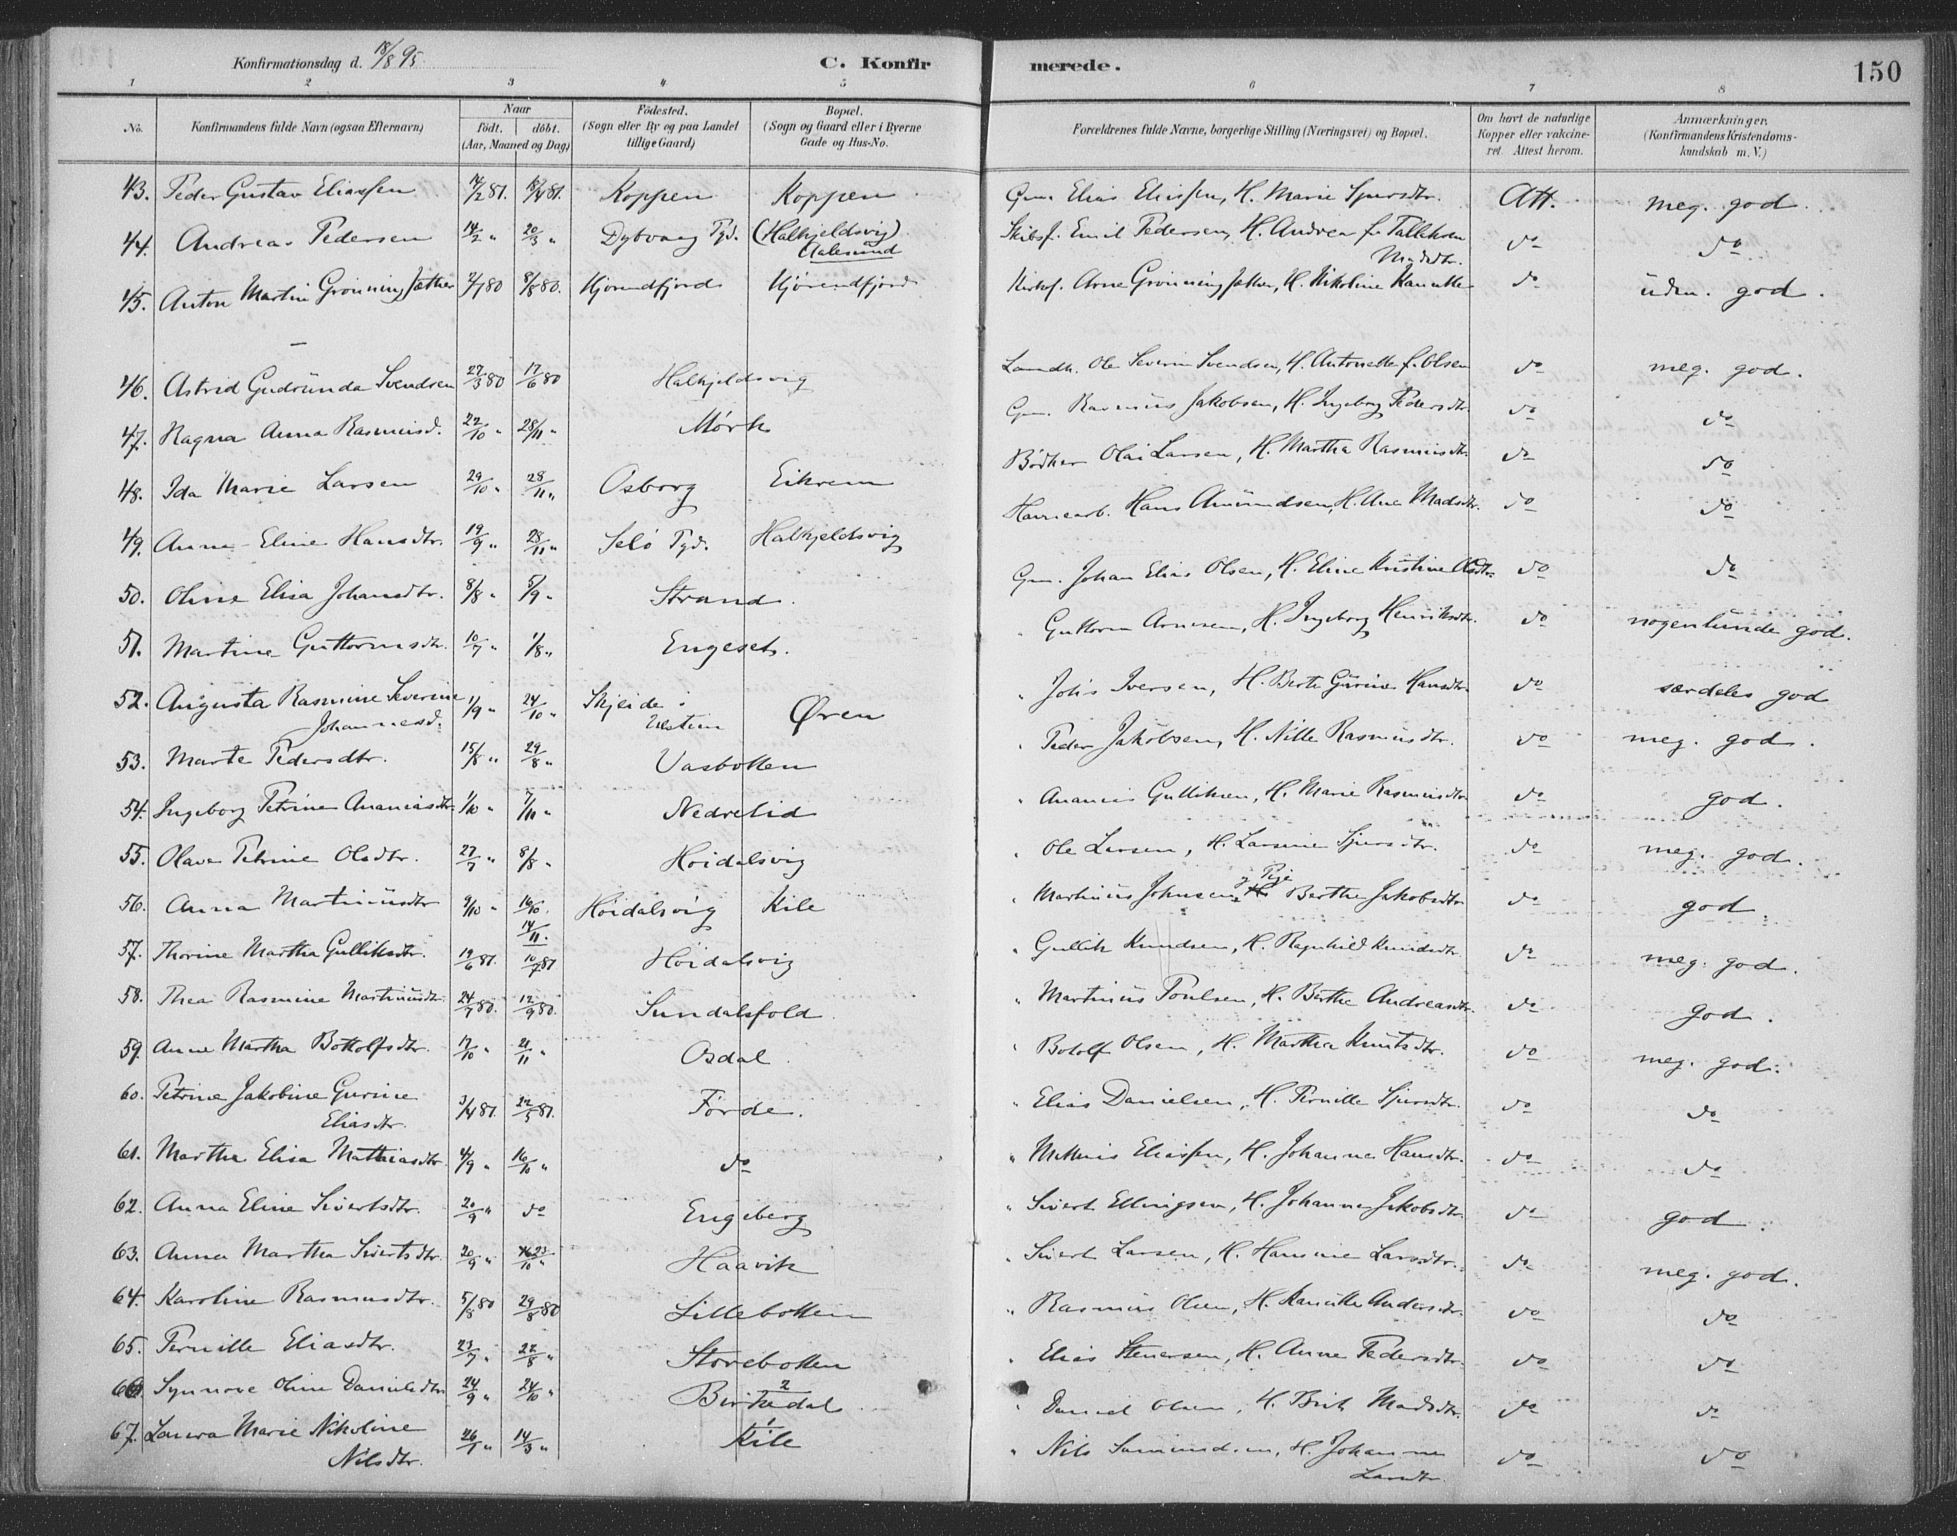 Konfirmationsdag d. 18/8 95. C. Konfirmerede. 150
1 2 3 4 5 6 7 8
No. Konfirmandens fulde Navn (ogsaa Efternavn) Naar født. døbt. (Aar, Maaned og Dag) Födested. (Sogn eller By og paa Landet tillige Gaard) Bopæl. (Sogn og Gaard eller i Byerne Gade og Hus-No. Forældrenes fulde Navne, borgerlige Stilling (Næringsvei) og Bopæl. Om havt de naturlige Kopper eller vakcineret. Attest herom. Anmærkninger. (Konfirmandens Kristendomskundskab m. V.)
43. Peder Gustav Eliassen 14/2 81. 18/4 81. Koppen Koppen Gm. Elias Eliassen, H. Marie Sjursdtr. Att. meg. god
44. Andreas Pedersen 14/2 " 20/3 " Dybvaag Pgd. (Halkjeldsvig) Aalesund Skibsf. Emil Pedersen, H. Andrea f. Madsdtr. do do
45. Anton Martin Grønningsæther 7/7 80 8/8 80. Hjørendfjord Hjørendfjord Arne Grønningsæther, H. Nikoline do uden. god.
46. Astrid Gudrunda Svendsen 27/3 80 17/6 80 Halkjeldsvig Landh. Ole Severin Svendsen, H. Antonette f. Olsen do meg. god.
47. Ragna Anna Rasmusd. 22/10 " 28/11 " Mørk Gm. Rasmus Jakobsen, H. Ingeborg Pedersdtr. do do
48. Ida Marie Larsen 29/10 " 28/11 " Osborg Eikrem Bødker Olai Larsen, H. Martha Rasmusdtr. do do
49. Anne Eline Hansdtr. 19/9 " 28/11 " Selö Pgd. Halkjeldsvig Havnearb. Hans Amundsen, H. Ane Madsdtr. do do
50. Oline Elisa Johansdtr. 8/8 " 5/9 " Strand. Gm. Johan Elias Olsen, H. Eline Kristine Olsdtr. do do
51. Martine Guttormsdtr. 10/7 " 1/8 " Engeset. " Guttorm Arnesen, H. Ingeborg Henriksdtr. do nogenlunde god.
52. Augusta Rasmine Severine Johannesd. 1/9 " 24/10 " Skjeide i Ulstein Øren " Johs Iversen, H. Berte Gurine Hansdtr do særdeles god
53. Marte Pedersdtr. 15/8 " 29/8 " Vasbotten " Peder Jakobsen, H. Nille Rasmusdtr. do meg. god.
54. Ingeborg Petrine Ananiasdtr 1/10 " 7/11 " Nedrelid " Ananias Gulliksen, H. Marie Rasmusdtr do god.
55. Olave Petrine Olsdtr. 27/7 " 8/8 " Høidalsvig " Ole Larsen, H. Larsine Sjursdtr. do meg. god.
56. Anna Martinusdtr 9/10 " 16/10. 14/11. Høidalsvig Kile " Martinus Johnsen og Pige Berthe Jakobsdtr do god
57. Thorine Martha Gulliksdtr. 19/6 81. 10/7 81 Høidalsvig " Gullik Knudsen, H. Ragnhild Knudsdtr do meg. god.
58. Thea Rasmine Martinusdtr 24/7 80. 12/9 80. Sundalsfold " Martinus Poulsen, H. Berthe Andreasdtr. do god.
59. Anne Martha Bottolfsdtr. 17/10 " 21/11 " Osdal " Botolf Olsen, H. Martha Knutsdtr. do meg. god.
60. Petrine Jakobine Gurine Eliasdtr. 3/4 81. 22/5 81. Førde. " Elias Danielsen, H. Pernille Sjursdtr. do do
61. Martha Elisa Mathiasdtr 4/9 " 16/10 " do " Mathias Eliassen, H. Johanne Hansdtr. do do
62. Anna Eline Sivertsdtr. 20/9 " do Engeberg " Sivert Ellingsen, H. Johanne Jakobsdtr. do god.
63. Anna Martha Sivertsdtr. 20/9 " 23/10 " Haavik " Sivert Larsen, H. Hansine Larsdtr. do meg. god.
64. Karoline Rasmusdtr. 5/8 80 29/8 80 Lillebotten " Rasmus Olsen, H. Andersdtr. do do
65. Pernille Eliasdtr. 23/7 " 22/8 " Storebotten " Elias Stenersen, H. Anne Pedersdtr. do do
66. Synnøve Oline Danielsdtr 24/9 " 24/10 " Birkedal 2 " Daniel Olsen, H. Brit Madsdtr. do do
67. Laura Marie Nikoline Nilsdtr. 26/1 " 14/3 " Kile " Nils H. Johanne Larsdtr. do do